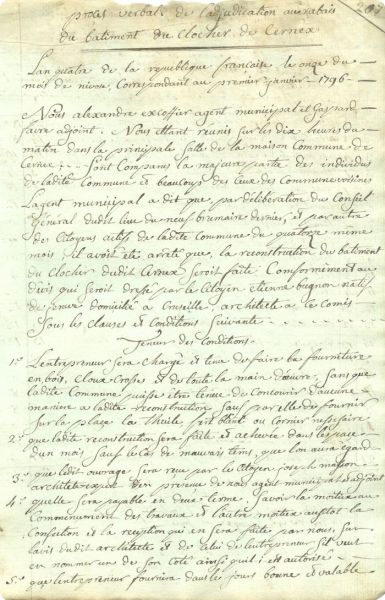 procès verbal de l'adjudication au rabais
du batiment du Clocher de Cernex
L'an quatre de la republique françoise le onze du
mois de nivose, Correspondant au premier janvier 1796
Nous alexandre excoffier agent municipal et Gaspard
favre adjoint. Nous ettant reunis sur les dix heures du
matin dans la principale salle de la maison Commune de
Cernex. Sont Comparus la majeure partie des individus
de ladite Commune et beaucoups de Ceux des Communes voisines
Lagent municipal a dit que par deliberation du Conseil
General dudit lieu du neuf brumaire dernier, et par autre
des Citoyens actifs de ladite Commune du quatorze meme
mois il avoit eté arreté que la reconstruction du batiment
du Clochér dudit Cernex seroit faite Comformement au
devis qui seroit dressé par le Citoyen etienne bugnon natif
de domicilié a Cruseille, architecte a ce Comis
sous les Clauses et Conditions suivante
Teneur des Conditions.
1.° L'entrepreneur sera Chargé et tenu de faire la fourniture
en bois, Cloux et de toute la main d'œuvre, sans que
ladite Commune puisse etre tenue de Concourir d'aucune
maniere a ladite reconstruction sauf par elle de fournir
sur la place la thuile fert blanc ou Cornier necessaire
2.° que ladite reconstruction sera faite et achevée dans l'espace
d'un mois sauf le Cas de mauvais tems, que l'on aura égard
3.° que ledit ouvrage sera reçu par le Citoyen joseph masson
architecte expert en presence de nos agent municipal et adjoint
4.° quelle sera payable en deux terme, savoir la moitié au
Commencement des travaux et l'autre moitié aussitot la
Confection et la reception qui en sera faite par nous, sur
l'avis dudit architecte et de celui de l'entrepreneur s'il veut
en nommer un de son Coté ainsi qu'il est autorisé
5.° que l'entrepreneur fournira dans le jour bonne et valable